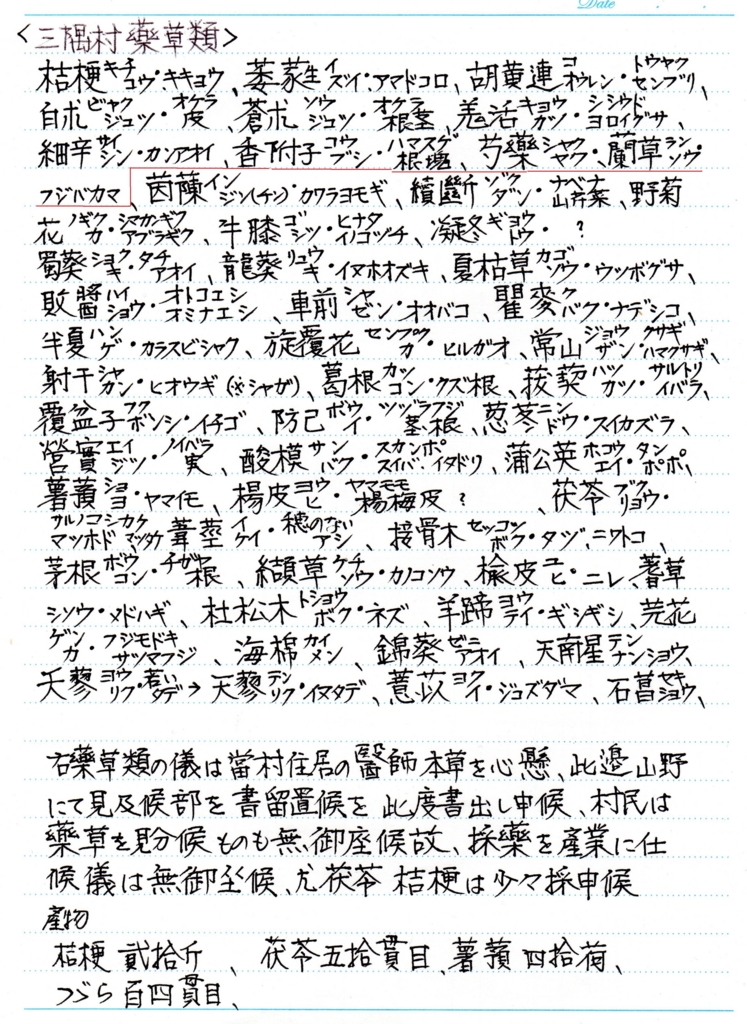 Date
<三隅村藥草類>
桔梗キチコウ・キキョウ、萎蕤生イズイ・アマドコロ、胡黄連コオウレン・トウヤクセンブリ、
白朮ビャクジュツ・オケラ皮、蒼朮ソウジュツ・オケラ根茎、羗活キョウカツ・シシウドヨロイグサ、
細辛サイシン・カンアオイ、香附子コウブシ・ハマスゲ根塊、芍藥シャクヤク・蘭草ランソウ
フジバカマ、茵蔯インジン(チン)・カワラヨモギ、續斷ゾクダン・ナベナ山芹菜、野菊
花ノギクカ・シマカンギクアブラギク、牛膝ゴシツ・ヒナタイノコヅチ、凝冬ギョウトウ・?
蜀葵ショクキ・タチアオイ、龍葵リュウキ・イヌホオズキ、夏枯草カゴソウ・ウツボグサ、
敗醬ハイショウ・オトコエシオミナエシ、車前シャゼン・オオバコ、瞿麥クバク・ナデシコ、
半夏ハンゲ・カラスビシャク、旋覆花センプクカ・ヒルガオ、常山ジョウザン・クサギハマクサギ、
射干シャカン・ヒオウギ(※シャガ)、葛根カッコン・クズ根、菝葜ハツカツ・サルトリイバラ、
覆盆子フクボンシ・イチゴ、防己ボウイ・ツヅラフジ茎根、葱苳ニンドウ・スイカズラ、
營實エイジツ・ノイバラ実、酸模サンバク・スカンポスイバ・イタドリ、蒲公英ホコウエイ・タンポポ、
薯蕷ショヨ・ヤマイモ、楊皮ヨウヒ・ヤマモモ楊梅皮?、茯苓ブクリョウ・
サルノコシカケマツホドマツタケ葦莖イケイ・穂のないアシ、接骨木セッコツボク・タヅ、ニワトコ、
茅根ボウコン・チガヤ根、纈草ケチソウ・カノコソウ、楡皮ユヒ・ニレ、蓍草
シソウ・メドハギ、杜松木トショウボク・ネズ、羊蹄ヨウテイ・ギシギシ、芫花
ゲンカ・フジモドキサツマフジ、海棉カイメン、錦葵ゼニアオイ、天南星テンナンショウ、
夭蓼ヨウリク・若いタデ→天蓼テンリク・イヌタデ、薏苡ヨクイ・ジュズダマ、石菖セキショウ、
右藥草類の儀は當村住居の醫師本草を心懸、此邉山野
にて見及候部を書留置候を此度書出し申候、村民は
藥草を見分候ものも無御座候故、採藥を産業に仕
候儀は無御坐候、尤茯苓桔梗は少々採申候
産物
桔梗貳拾斤、茯苓五拾貫目、薯蕷四拾荷、
つづら百四貫目、